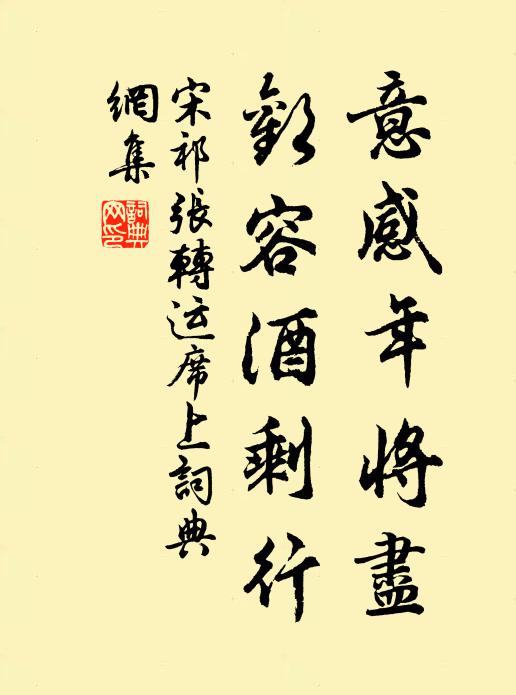 意感年將盡
歡容酒剩行
宋祁張轉运席上詞典
網集
詞典
网印